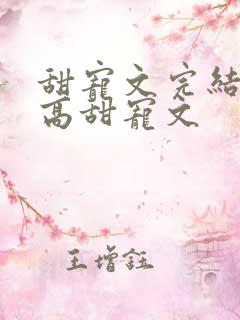 甜寵文完結
高甜寵文
王增鈺